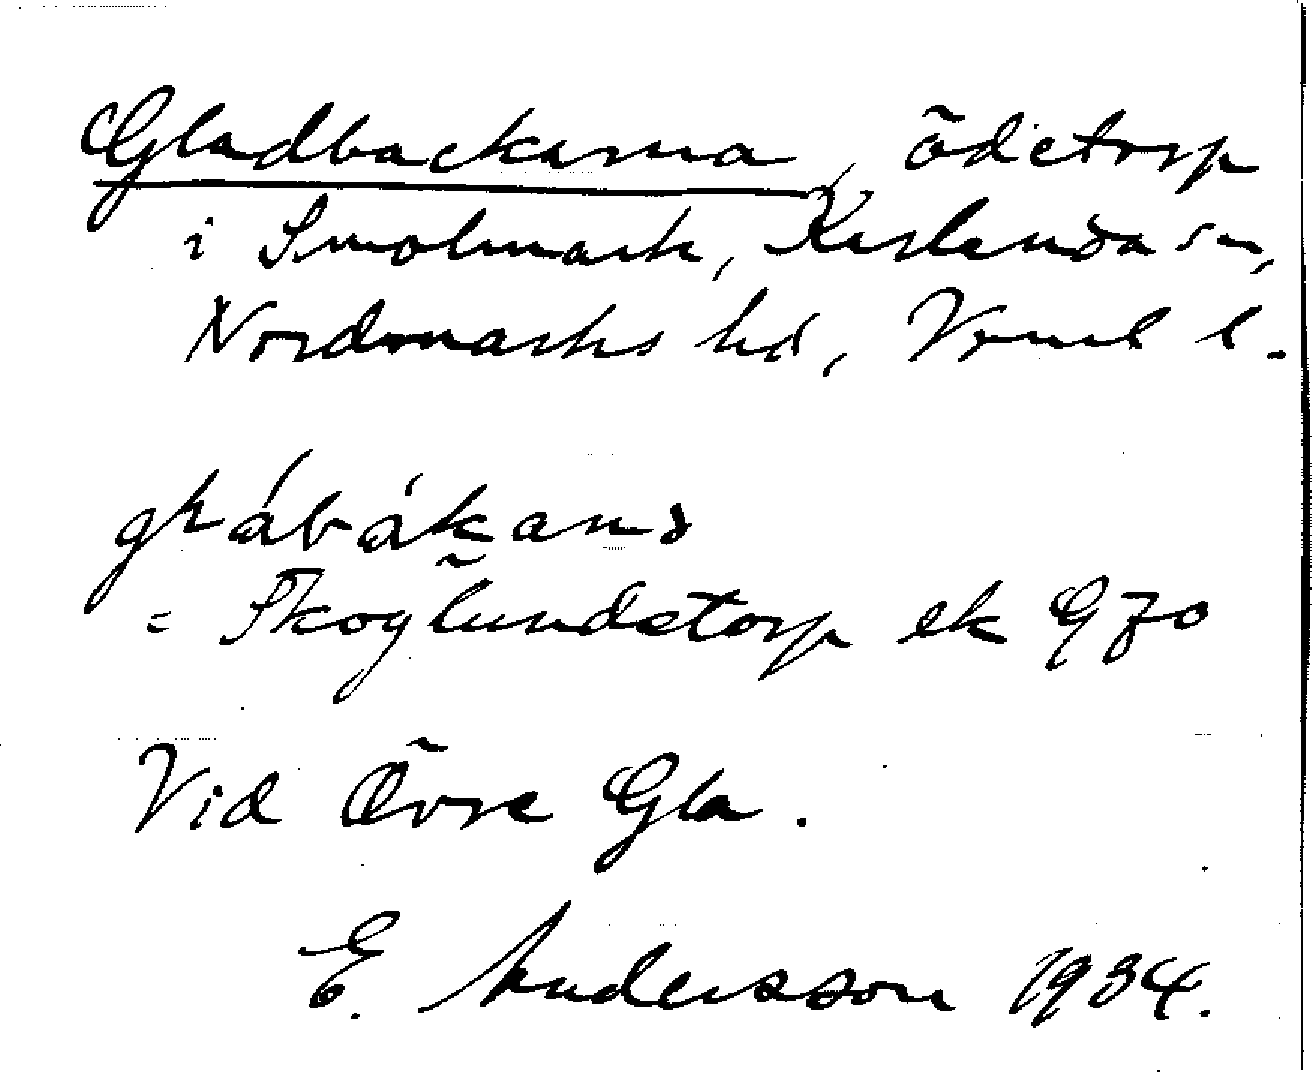 Gladbackarna, ödetorp
i Smolmark, Karlanda sn,
Nordmarks hd, Vrml l.
= Skoglundstorp ek 970
Vid Övre Gla.
E. Andersson 1934.